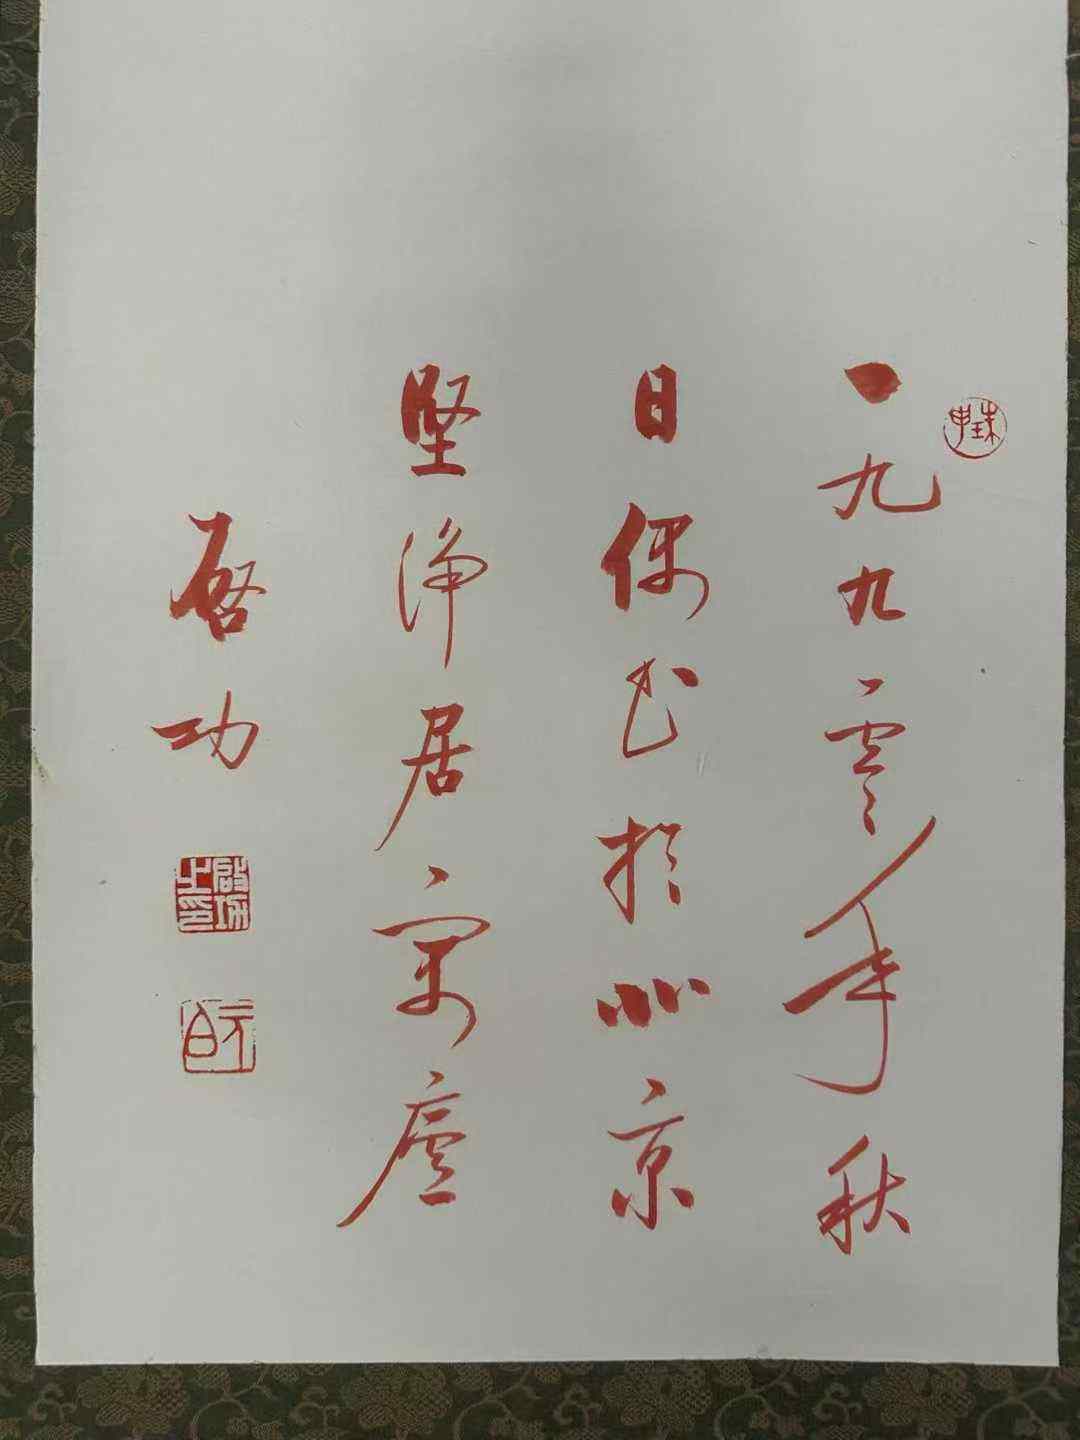 一九九零年秋
日偶书于北京
坚净居寓庐
启功
启功之印
元白
珠申